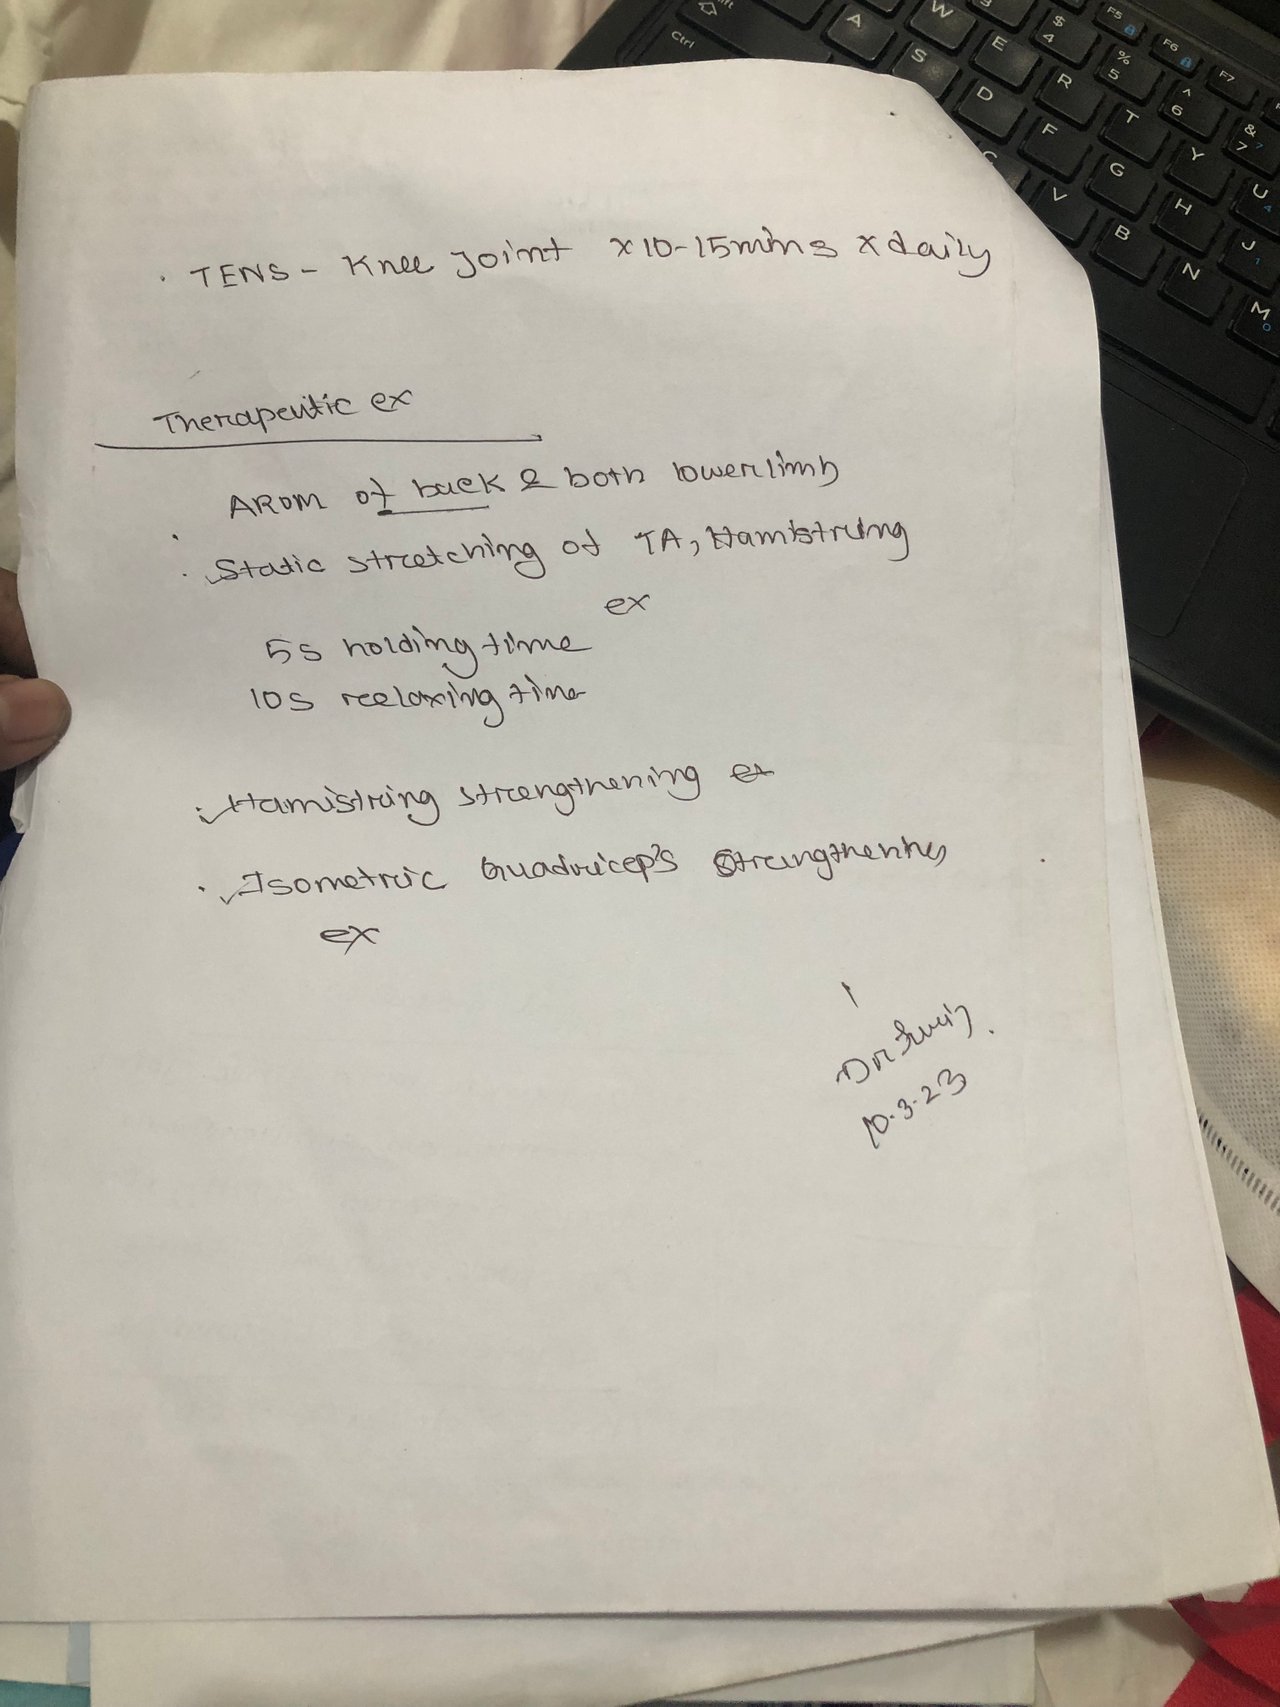 . TENS - Knee Joint x 10-15mins x daily
Therapeutic ex
AROM of back & both lower limb
. Static stretching of TA, Hamistring
ex
5s holding time
10s reelaxing time
. Hamistring strengthening ex
. Isometric Quadricep's Strengthening
ex
Dr.
10.3.23
Ctrl
A
S
W
E
D
$
4
R
F
C
F5
%
5
T
G
V
F6
^
6
Y
H
B
F7
&
7
U
J
N
M